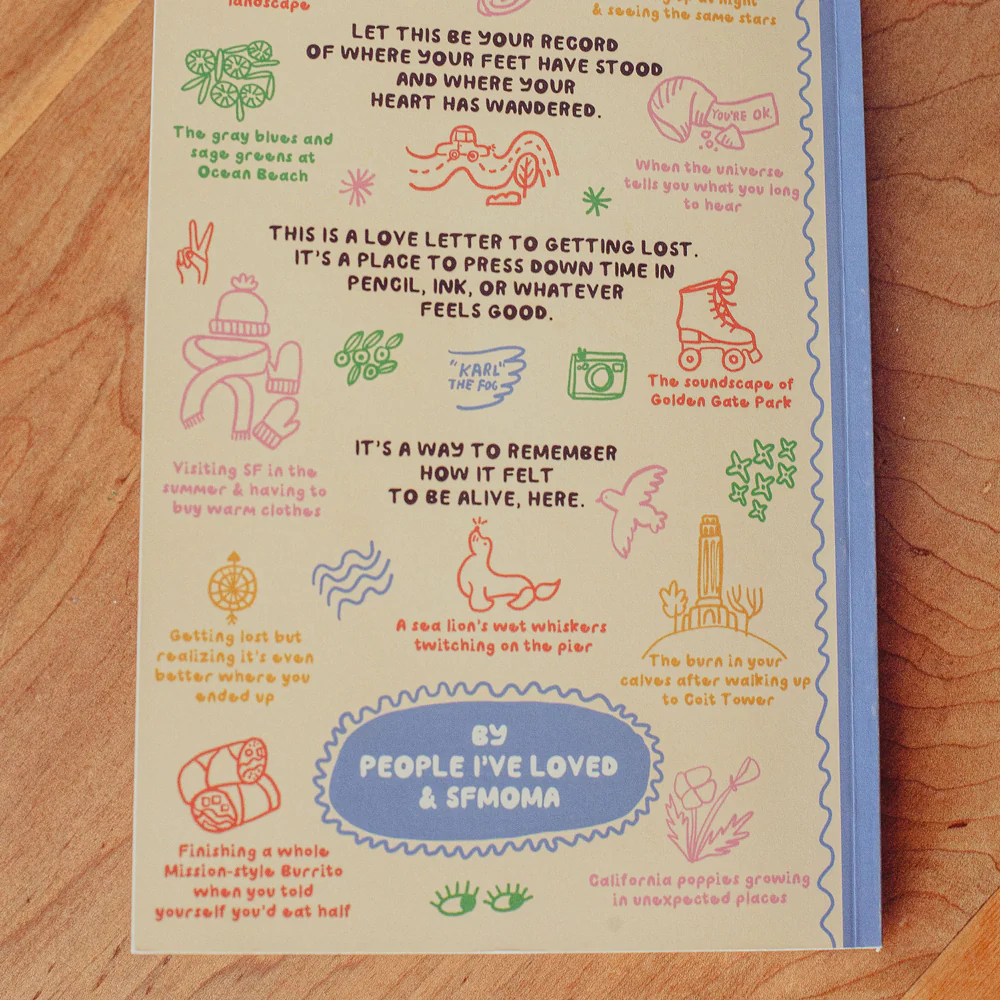 landscape
& seeing the same stars
LET THIS BE YOUR RECORD
OF WHERE YOUR FEET HAVE STOOD
AND WHERE YOUR
HEART HAS WANDERED.
The gray blues and
sage greens at
Ocean Beach
YOU'RE OK.
When the universe
tells you what you long
to hear
THIS IS A LOVE LETTER TO GETTING LOST.
IT'S A PLACE TO PRESS DOWN TIME IN
PENCIL, INK, OR WHATEVER
FEELS GOOD.
"KARL"
THE FOG
The soundscape of
Golden Gate Park
Visiting SF in the
summer & having to
buy warm clothes
IT'S A WAY TO REMEMBER
HOW IT FELT
TO BE ALIVE, HERE.
Getting lost but
realizing it's even
better where you
ended up
A sea lion's wet whiskers
twitching on the pier
The burn in your
calves after walking up
to Coit Tower
BY
PEOPLE I'VE LOVED
& SFMOMA
Finishing a whole
Mission-style Burrito
when you told
yourself you'd eat half
California poppies growing
in unexpected places